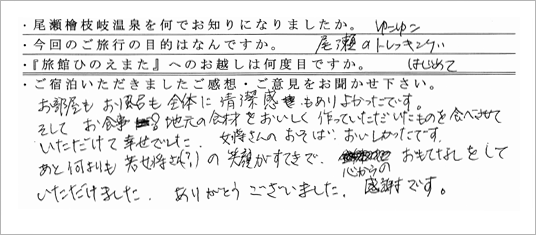 ・尾瀬檜枝岐温泉を何でお知りになりましたか。 ゆこゆこ
・今回のご旅行の目的はなんですか。 尾瀬のトレッキング
・『旅館ひのえまた』へのお越しは何度目ですか。 はじめて
・ご宿泊いただきましたご感想・ご意見をお聞かせ下さい。
お部屋も お風呂も 全体に 清潔感もありよかったです。
そして お食事も地元の食材をおいしく 作っていただいたものを食べさせて
いただけて 幸せでした. 女将さんのおそば、おいしかったです.
あと 何よりも 若女将さん(?)の 笑顔がすてきで、 心からの おもてなしをして
いただけました. ありがとう ございました. 感謝です。